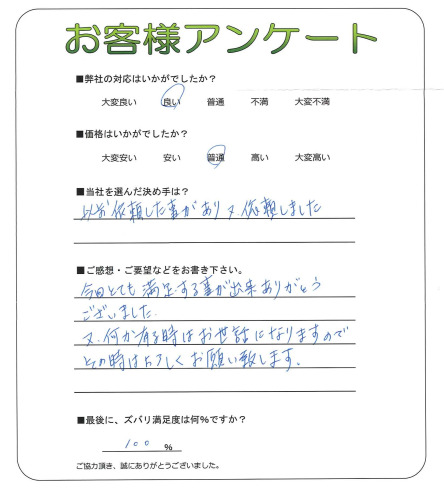 お客様アンケート
■弊社の対応はいかがでしたか？
大変良い 良い 普通 不満 大変不満
■価格はいかがでしたか？
大変安い 安い 普通 高い 大変高い
■当社を選んだ決め手は？
以前依頼した事があり又、依頼しました
■ご感想・ご要望などをお書き下さい。
今回とても満足する事が出来ありがとう
ございました。
又、何か有る時はお世話になりますので
その時はよろしくお願い致します。
■最後に、ズバリ満足度は何%ですか？
100 %
ご協力頂き、誠にありがとうございました。